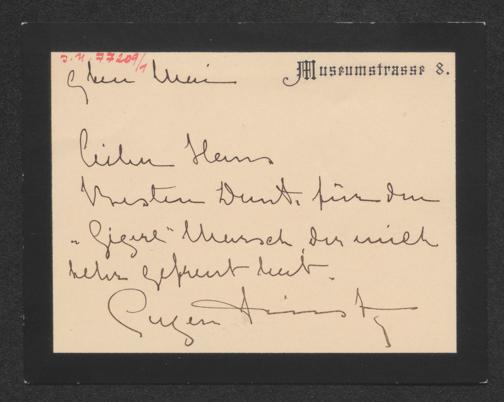 J. N. 77209/1
Museumstrasse 8.
9ten Mai
Lieber Hans
Besten Dank für den
„Gigerl“ Marsch, der mich
sehr gefreut hat.
Eugen